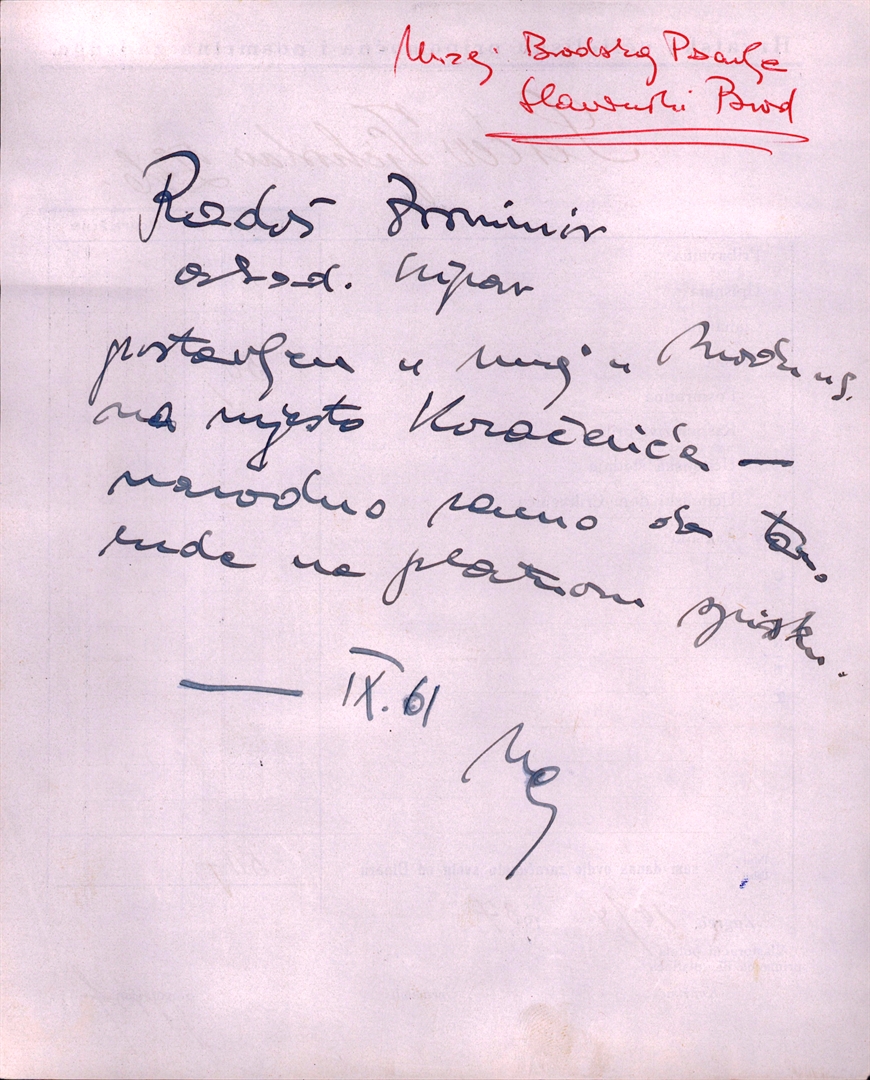 Muzej Brodskog Posavlja
Slavonski Brod
Radoš Zvonimir
akad. kipar
postavljen u muzej u Brodu n/S.
na mjesto Kovačevića —
navodno samo da
bude na platnom spisku.
— IX. 61